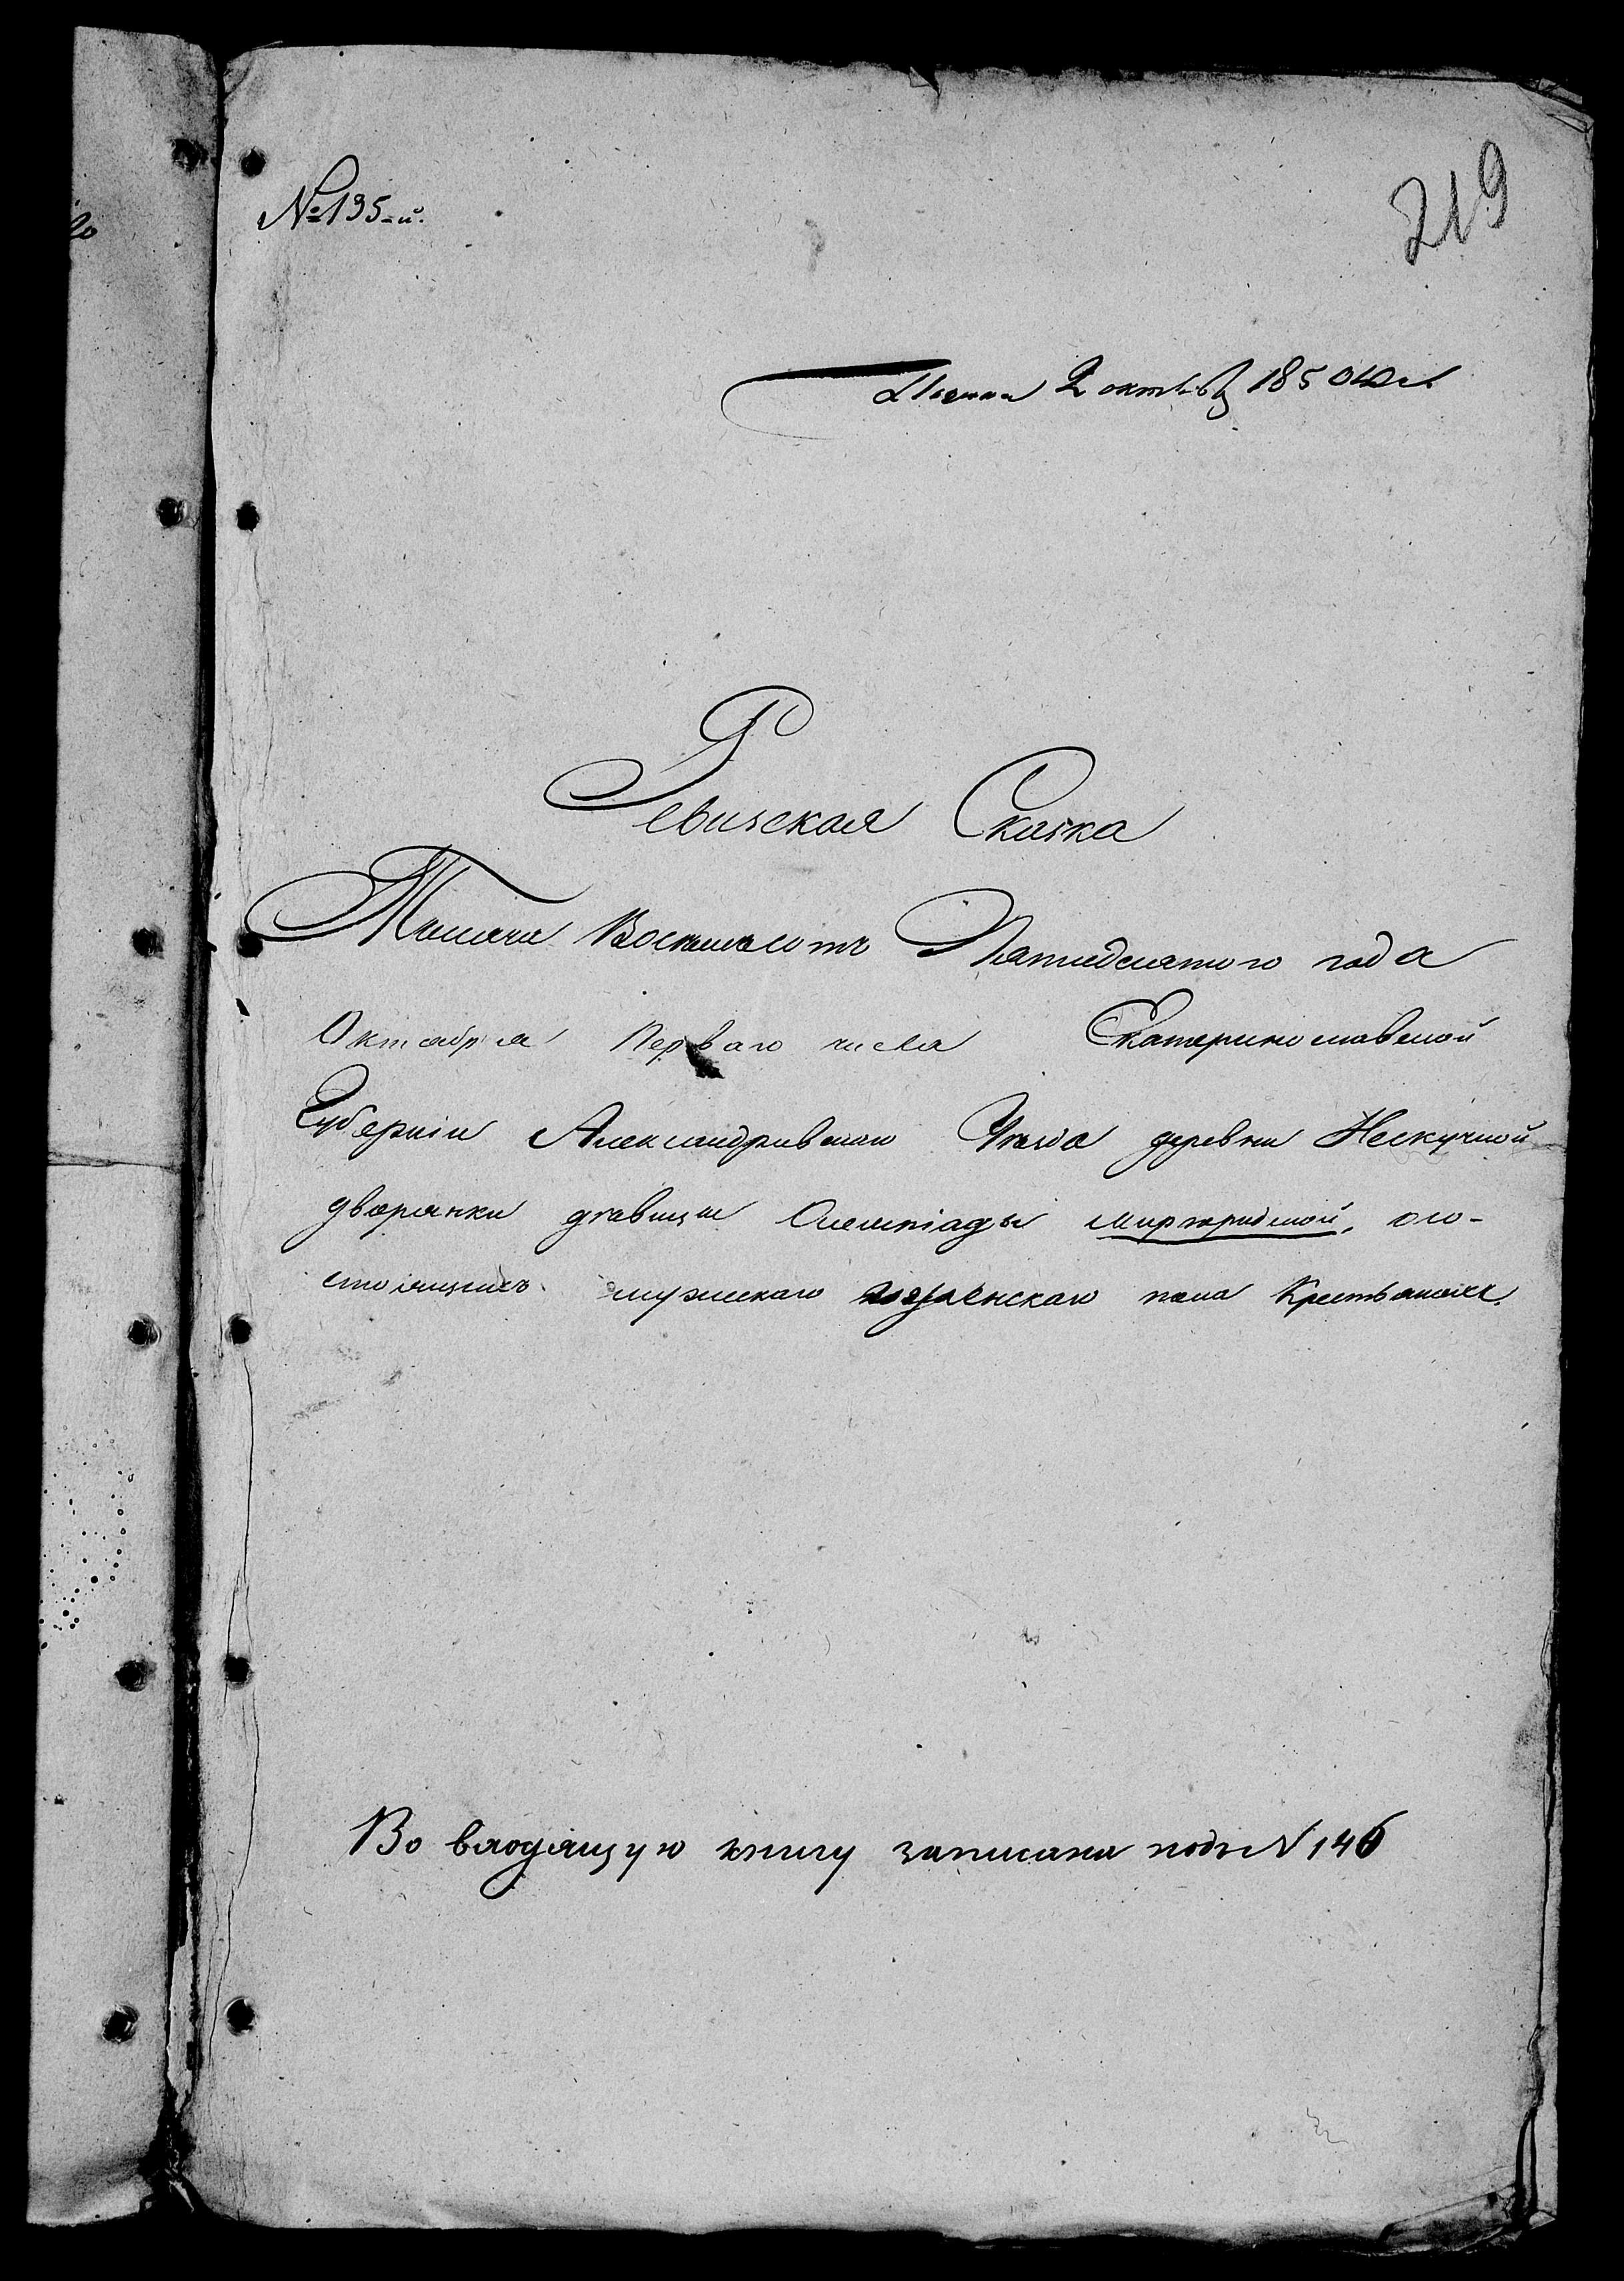 № 195-й.
219
Подана 2 октября 1850 года
Ревизская Сказка
Тысяча Восемьсотъ Пятидесятого года
Октября Перваго числа Екатеринославской
Губерніи Александривского Уезда деревни Нескучной
дворянки девицы Олемпіады Миргородской, о со-
стоящихъ мужескаго и женскаго пола Крестьянахъ.
Во входящую книгу записана подъ N 146